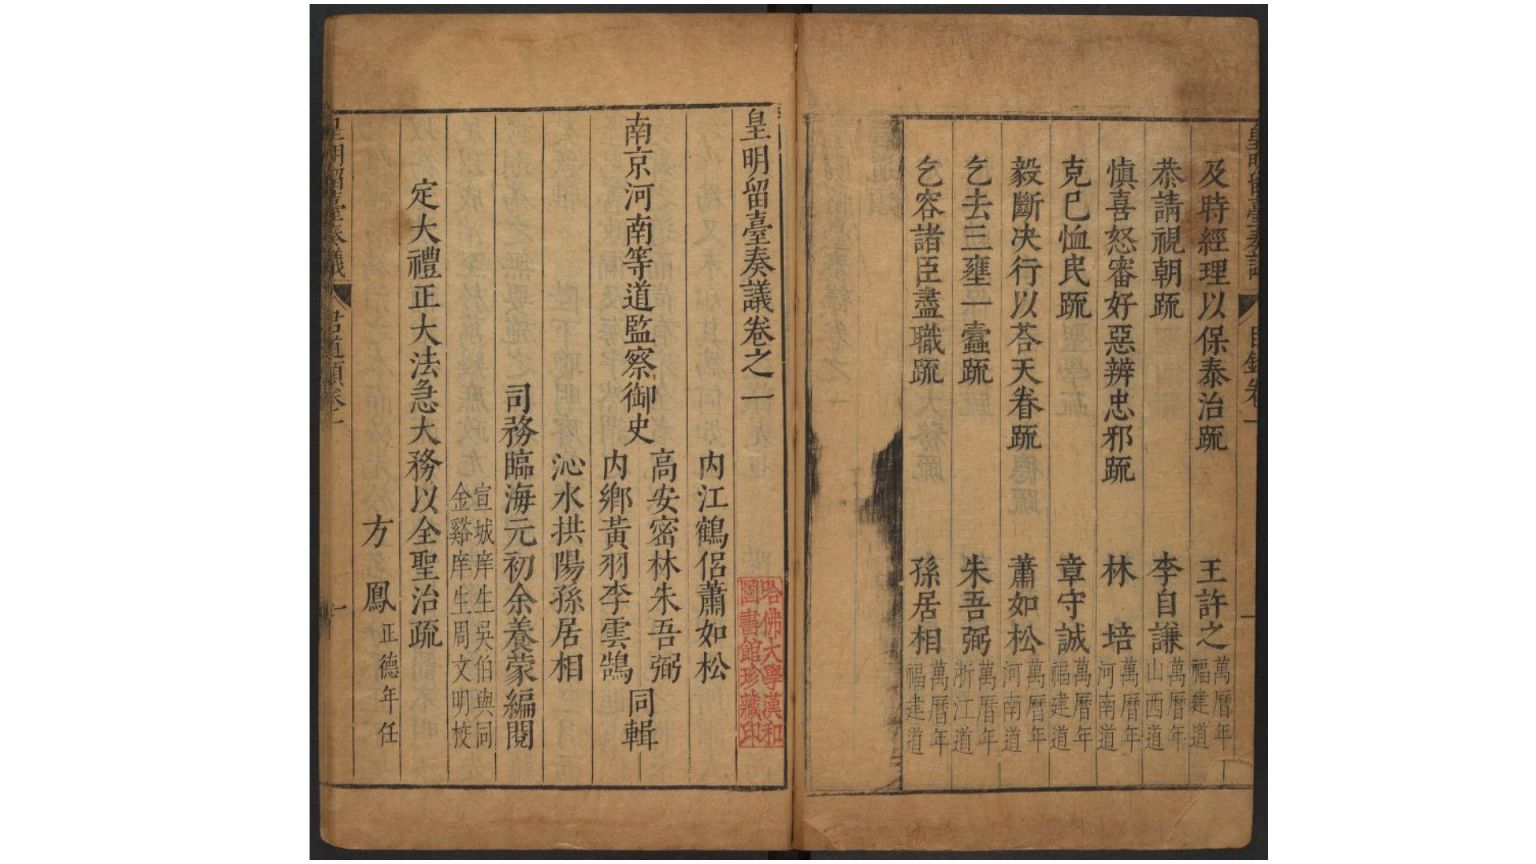 及時經理以保泰治疏 王許之 萬曆年福建道
恭請視朝疏 李自謙 萬曆年山西道
慎喜怒審好惡辨忠邪疏 林培 萬曆年河南道
克己恤民疏 章守誠 萬曆年福建道
毅斷决行以荅天眷疏 蕭如松 萬曆年河南道
乞去三壅一蠧疏 朱吾弼 萬曆年浙江道
乞容諸臣盡職疏 孫居相 萬曆年福建道
皇明留臺奏議卷之一
哈佛大學漢和
圖書館珍藏印
内江鶴侣蕭如松
南京河南等道監察御史 高安密林朱吾弼 同輯
内鄉黃羽李雲鵠
沁水拱陽孫居相
司務臨海元初余養蒙編閱
宣城庠生吳伯與同
金谿庠生周文明校
定大禮正大法急大務以全聖治疏
方鳳 正德年任
皇明留臺奏議 君道類卷一 一